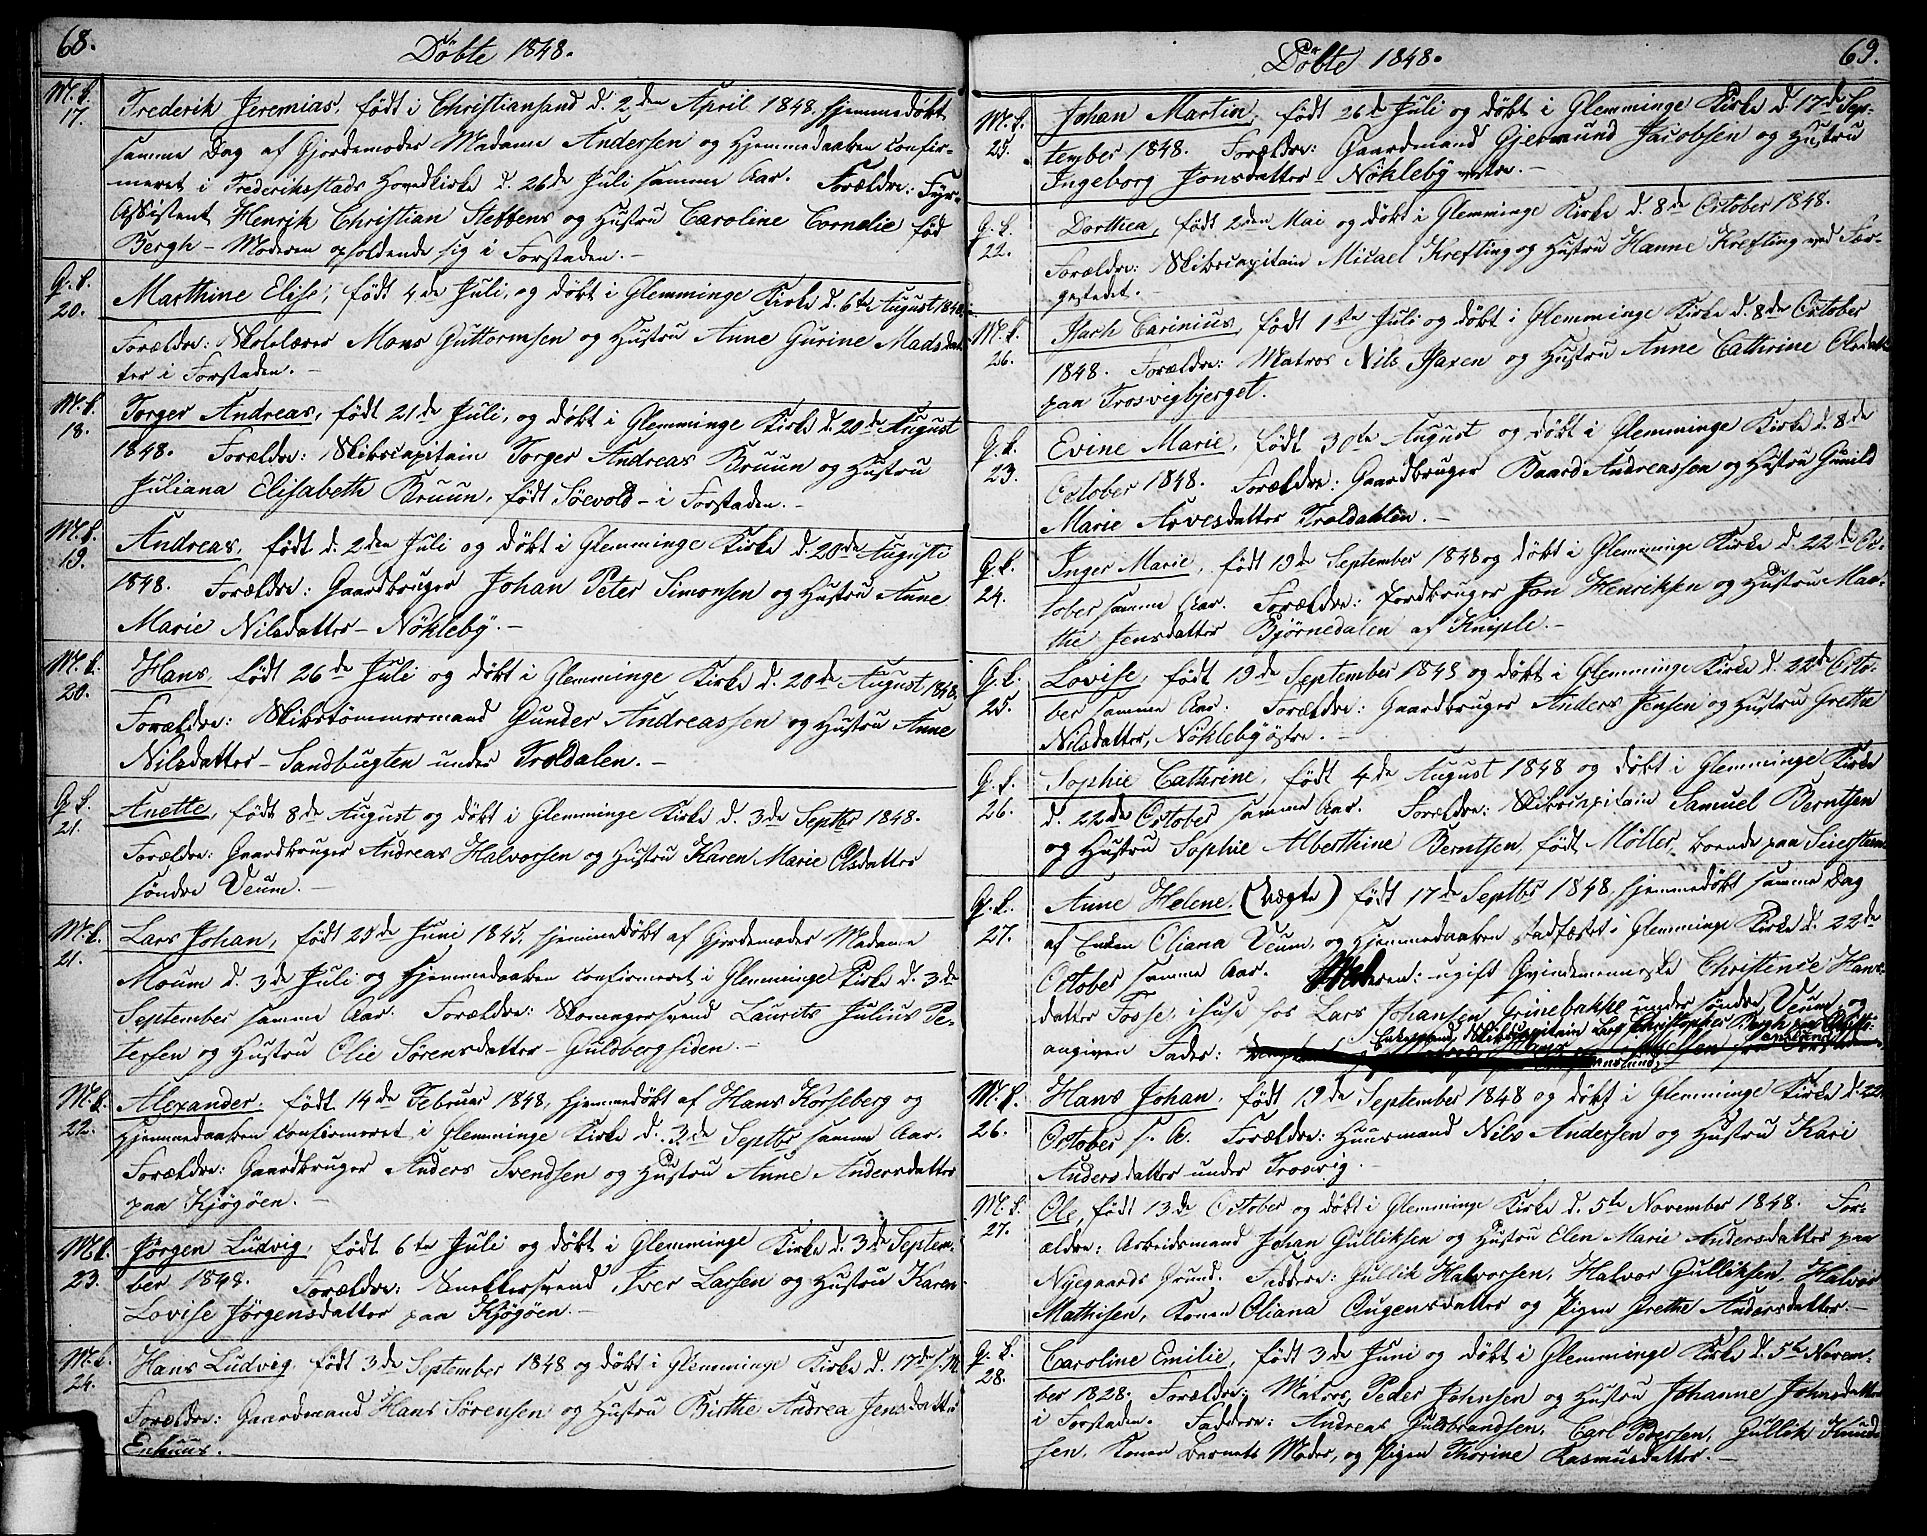 68.
Döbte 1848.
M. k. 17.
Frederik Jeremias, födt i Christiansand d. 2den April 1848, hjemmedöbt
samme Dag af Gjordemoder Madame Andersen og Hjemmedaaben confir-
meret i Frederiksstads Hovedkirke d. 26de Juli samme Aar. Forældre: Fyr-
Assistent Henrik Christian Steffens og Hustru Caroline Cornelie fød
Bergh – Moderen opholdende sig i Forstaden. –
G. k. 20.
Marthine Elise, födt 4de Juli, og döbt i Glemminge Kirke d. 6te August 1848.
Forældre: Skolelærer Mons Guttormsen og Hustru Anne Gurine Madsdat-
ter i Forstaden. –
M. k. 18.
Torger Andreas, födt 21de Juli, og döbt i Glemminge Kirke d. 20de August
1848. Forældre: Skibscapitain Torger Andreas Bruun og Hustru
Juliana Elisabeth Bruun, født Söevold – i Forstaden. –
M. k. 19.
Andreas, födt d. 2den Juli og döbt i Glemminge Kirke d. 20de Auguste
1848. Forældre: Gaardbruger Johan Peter Simonsen og Hustru Anne
Marie Nilsdatter – Nökleby. –
M. k. 20.
Hans, født 26de Juli og döbt i Glemminge Kirke d. 20de August 1848.
Forældre: Skibstömmermand Gunder Andreassen og Hustru Anne
Nilsdatter – Sandbugten under Troldalen. –
G. k. 21.
Anette, födt 8de August og döbt i Glemminge Kirke d. 3de Septbr 1848.
Forældre: Gaardbruger Andreas Halvorsen og Hustru Karen Marie Olsdatter
søndre Veum. –
M. k. 21.
Lars Johan, födt 25de Juni 1845, hjemmedöbt af Gjordemoder Madame
Moum d. 3de Juli og Hjemmedaaben confirmeret i Glemminge Kirke d. 3de
September samme Aar. Forældre: Skomagersvend Laurits Julius Pe-
tersen og Hustru Olie Sörensdatter – Guldbergsiden. –
M. k. 22.
Alexander, födt 14de Februar 1848, hjemmedöbt af Hans Korseberg og
Hjemmedaaben confirmeret i Glemminge Kirke d. 3de Septbr samme Aar.
Forældre: Gaardbruger Anders Svendsen og Hustru Anne Andersdatter
paa Kjögöen. –
M. k. 23.
Jörgen Ludvig, födt 6te Juli og döbt i Glemminge Kirke d. 3de Septem-
ber 1848. Forældre: Snekkersvend Iver Larsen og Hustru Karen
Lovise Jörgensdatter paa Kjögöen. –
M. k. 24.
Hans Ludvig, födt 3de September 1848 og döbt i Glemminge Kirke d. 17de s. M.
Forældre: Gaardmand Hans Sörensen og Hustru Birthe Andrea Jensdatter
Enhuus. –
Döbte 1848.
69.
M. k. 25.
Johan Martin, födt 26de Juli og döbt i Glemminge Kirke d. 17de Sep-
tember 1848. Forældre: Gaardmand Gjermund Jacobsen og Hustru
Ingeborg Jonsdatter – Nökleby vestre. –
G. k. 22.
Dorthea, födt 2den Mai og döbt i Glemminge Kirke d. 8de October 1848.
Forældre: Skibscapitain Micael Krefting og Hustru Hanne Krefting ved Fær-
gestedet.
M. k. 26.
Carinius, födt 1ste Juli og döbt i Glemminge Kirke d. 8de October
1848. Forældre: Matros Nils og Hustru Anne Cathrine Olsdatter
paa Trosvigbjerget.
G. k. 23.
Evine Marie, födt 30te August og döbt i Glemminge Kirke d. 8de
October 1848. Forældre: Gaardbruger Baard Andreassen og Hustru Gunild
Marie Arvesdatter Troldahlen. –
G. k. 24.
Inger Marie, födt 19de September 1848 og döbt i Glemminge Kirke d. 22de Oc-
tober samme Aar. Forældre: Jordbruger Jon Henriksen og Hustru Mar-
the Jensdatter Björnedalen af Kniple. –
G. k. 25.
Lovise, födt 19de September 1848 og döbt i Glemminge Kirke d. 22de Octo-
ber samme Aar. Forældre: Gaardbruger Anders Jensen og Hustru Grethe
Nilsdatter, Nökleby östre. –
G. k. 26.
Sophie Cathrine, födt 4de August 1848 og döbt i Glemminge Kirke
d. 22de October samme Aar. Forældre: Skibscapitain Samuel Berntsen
og Hustru Sophie Alberthine Berntsen, født Möller, boende paa
G. k. 27.
Anne Helene, (uægte) födt 17de Septbr 1848, hjemmedöbt samme Dag
af Enken Oliana Veum, og Hjemmedaaben stadfæstet i Glemminge Kirke d. 22de
October samme Aar. Moderen: ugift Qvindemenneske Christense Hans-
datter Fosse, i huse hos Lars Johansen Grinebakke under søndre Veum, og
angiven Fader: Enkemand Skibscapitain Lars Christopher Bergh
M. k. 26.
Hans Johan, födt 19de September 1848 og döbt i Glemminge Kirke d. 22
October s. A. Forældre: Huusmand Nils Andersen og Hustru Kari
Andersdatter under Trosvig. –
M. k. 27.
Ole, födt 13de October og döbt i Glemminge Kirke d. 5te November 1848. For-
ældre: Arbeidsmand Johan Gulliksen og Hustru Elen Marie Andersdatter paa
Nygaards Grund. Faddere: Gullik Halvorsen, Halvor Gulliksen, Halvor
Mathisen, Konen Oliana Ougensdatter og Pigen Grethe Andersdatter. –
G. k. 28.
Caroline Emilie, födt 3de Juni og döbt i Glemminge Kirke d. 5te Novem-
ber 1828. Forældre: Matros Peder Johnsen og Hustru Johanne Johnsdatter
i Forstaden. Faddere: Andreas Guldbrandsen, Carl Pedersen, Gullik Knud-
sen, Konen Barnets Moder, og Pigen Thorine Rasmusdatter. –